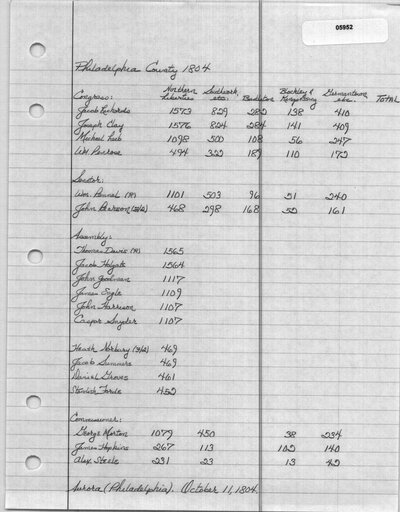 05952
Philadelphia County 1804
Congress: Northern Liberties Southwark etc. Bustleton Blockley & Kingsessing Germantown etc. TOTAL
Jacob Richards 1573 829 282 138 410
Joseph Clay 1576 824 284 141 409
Michael Leib 1098 500 108 56 247
Wm Penrose 494 322 189 110 172
Senator:
Wm. (R) 1101 503 96 51 240
John Pearson 468 298 168 52 161
Assembly:
Thomas (R) 1565
Jacob Holgate 1564
John Goodman 1117
James Engle 1109
John Harrison 1107
Caspar Snyder 1107
Heath Norbury 469
Jacob Summers 469
Daniel Groves 461
Standish Forde 452
Commissioner:
George Morton 1079 450 38 234
James Hopkins 267 113 102 140
Alex. Steele 231 23 13 42
Aurora (Philadelphia). October 11, 1804.